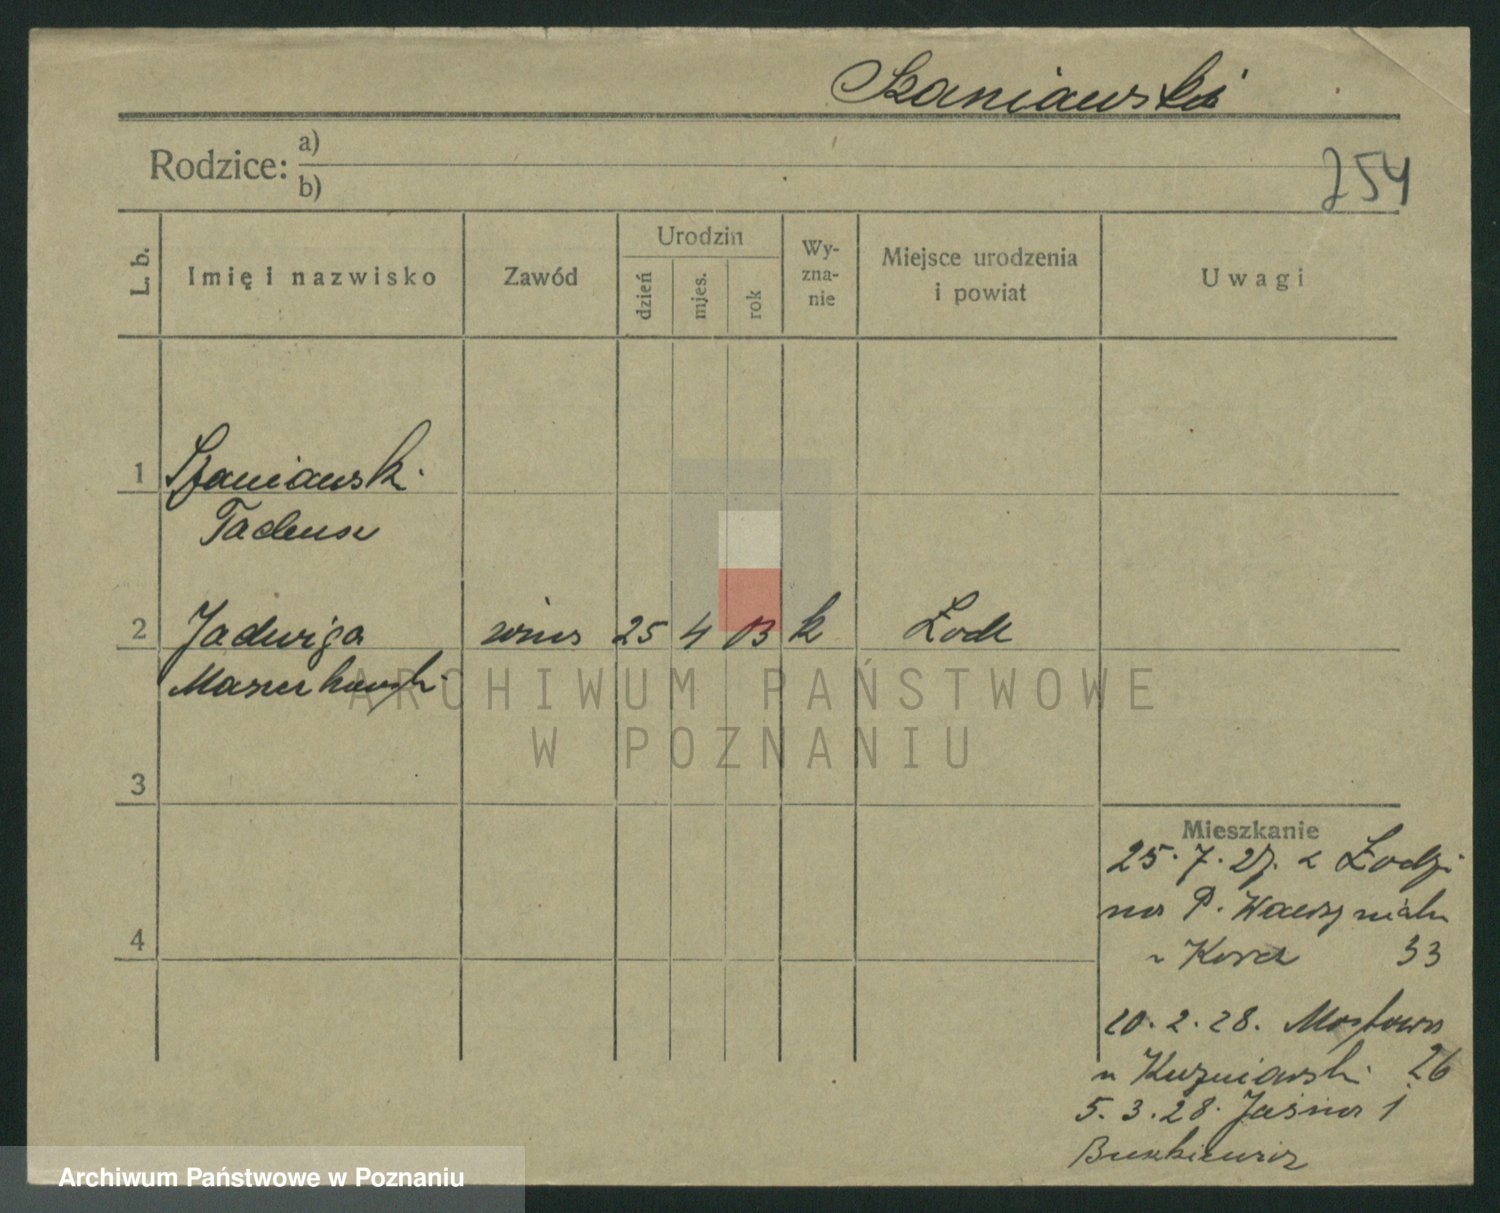 Szaniawski
Rodzice: a)
b)
254
L. b.
Imię i nazwisko
Zawód
Urodzin
dzień
mies.
rok
Wy-
zna-
nie
Miejsce urodzenia
i powiat
Uwagi
1 Szaniawski
Tadeusz
2 Jadwiga 25 4 03 k Łódź
3
4
Mieszkanie
25.7.27. z Łodzi
na P. Wawrzyniaka
33
10.2.28. Mostowa
u Kuzniawski 26
5.3.28. Jasna 1
ARCHIWUM PAŃSTWOWE
W POZNANIU
Archiwum Państwowe w Poznaniu